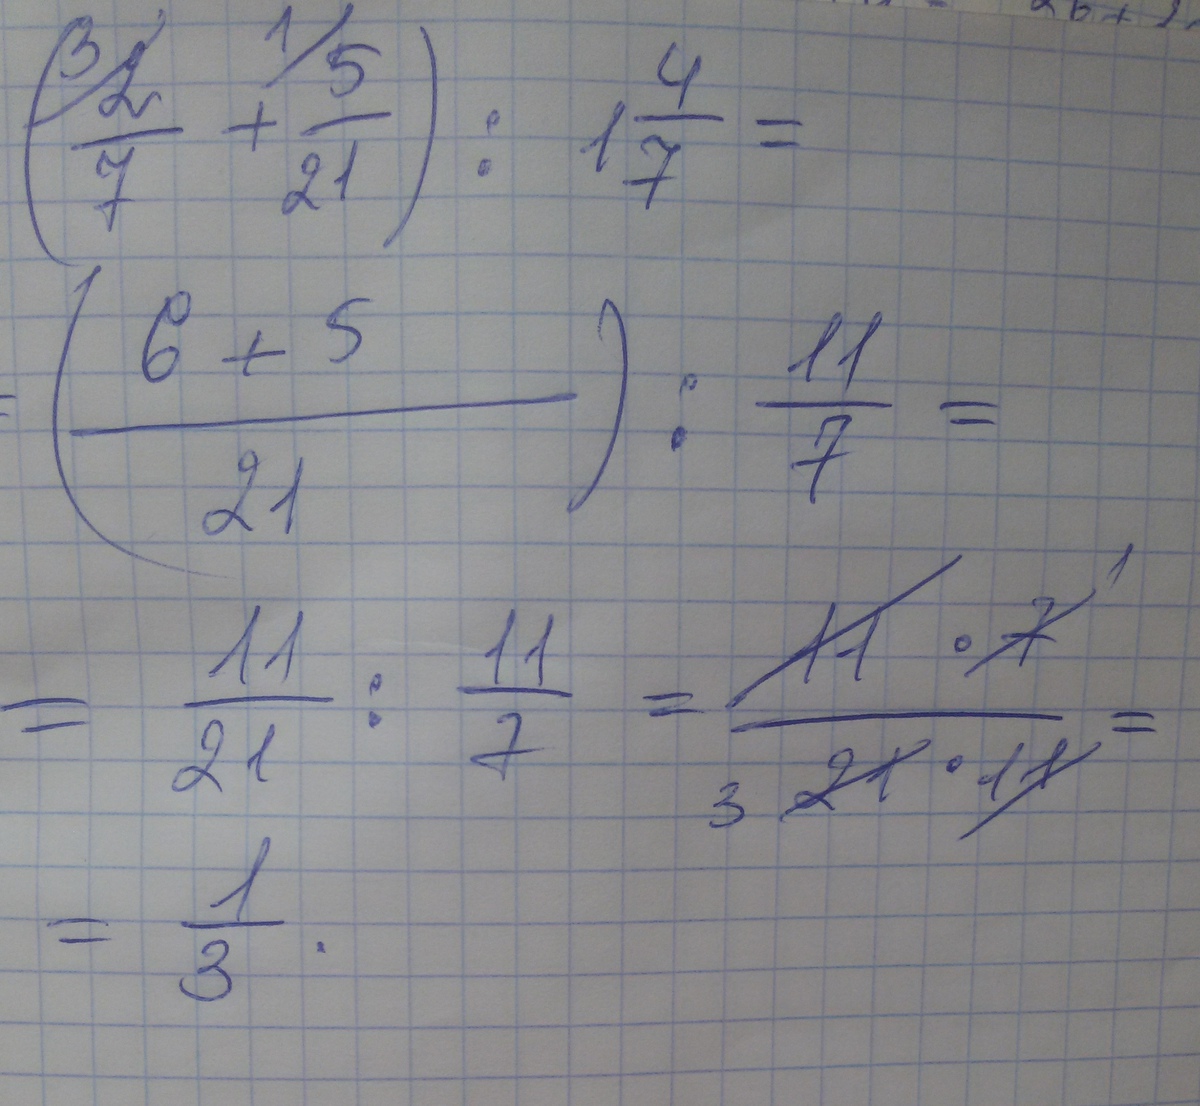 (2/7 + 5/21) : 1 4/7 =
= (6 + 5 / 21) : 11/7 =
= 11/21 : 11/7 = 11 · 7 / 21 · 11 =
= 1/3 .